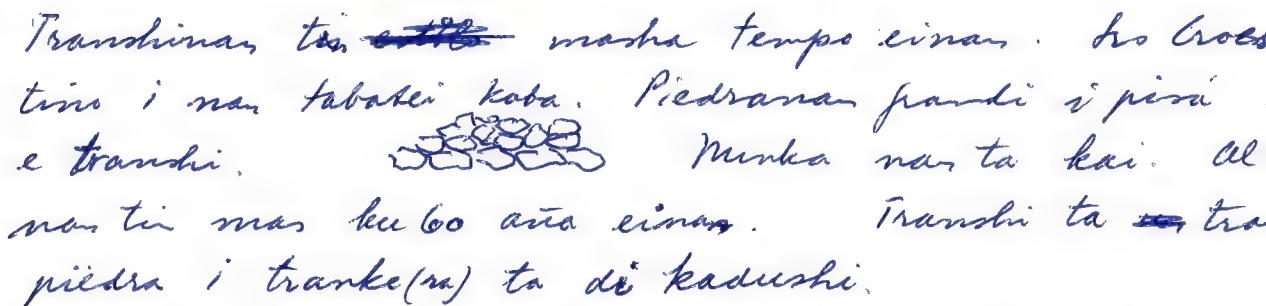 Transhinan tin masha tempo einan. Sro Croes
tino i nan tabatei koba. Piedranan grandi i pisá
e transhi. Nunka nan ta kai. Al
nan tin mas ku 60 aña einan. Transhi ta tra
piedra i tranke(ra) ta di kadushi.